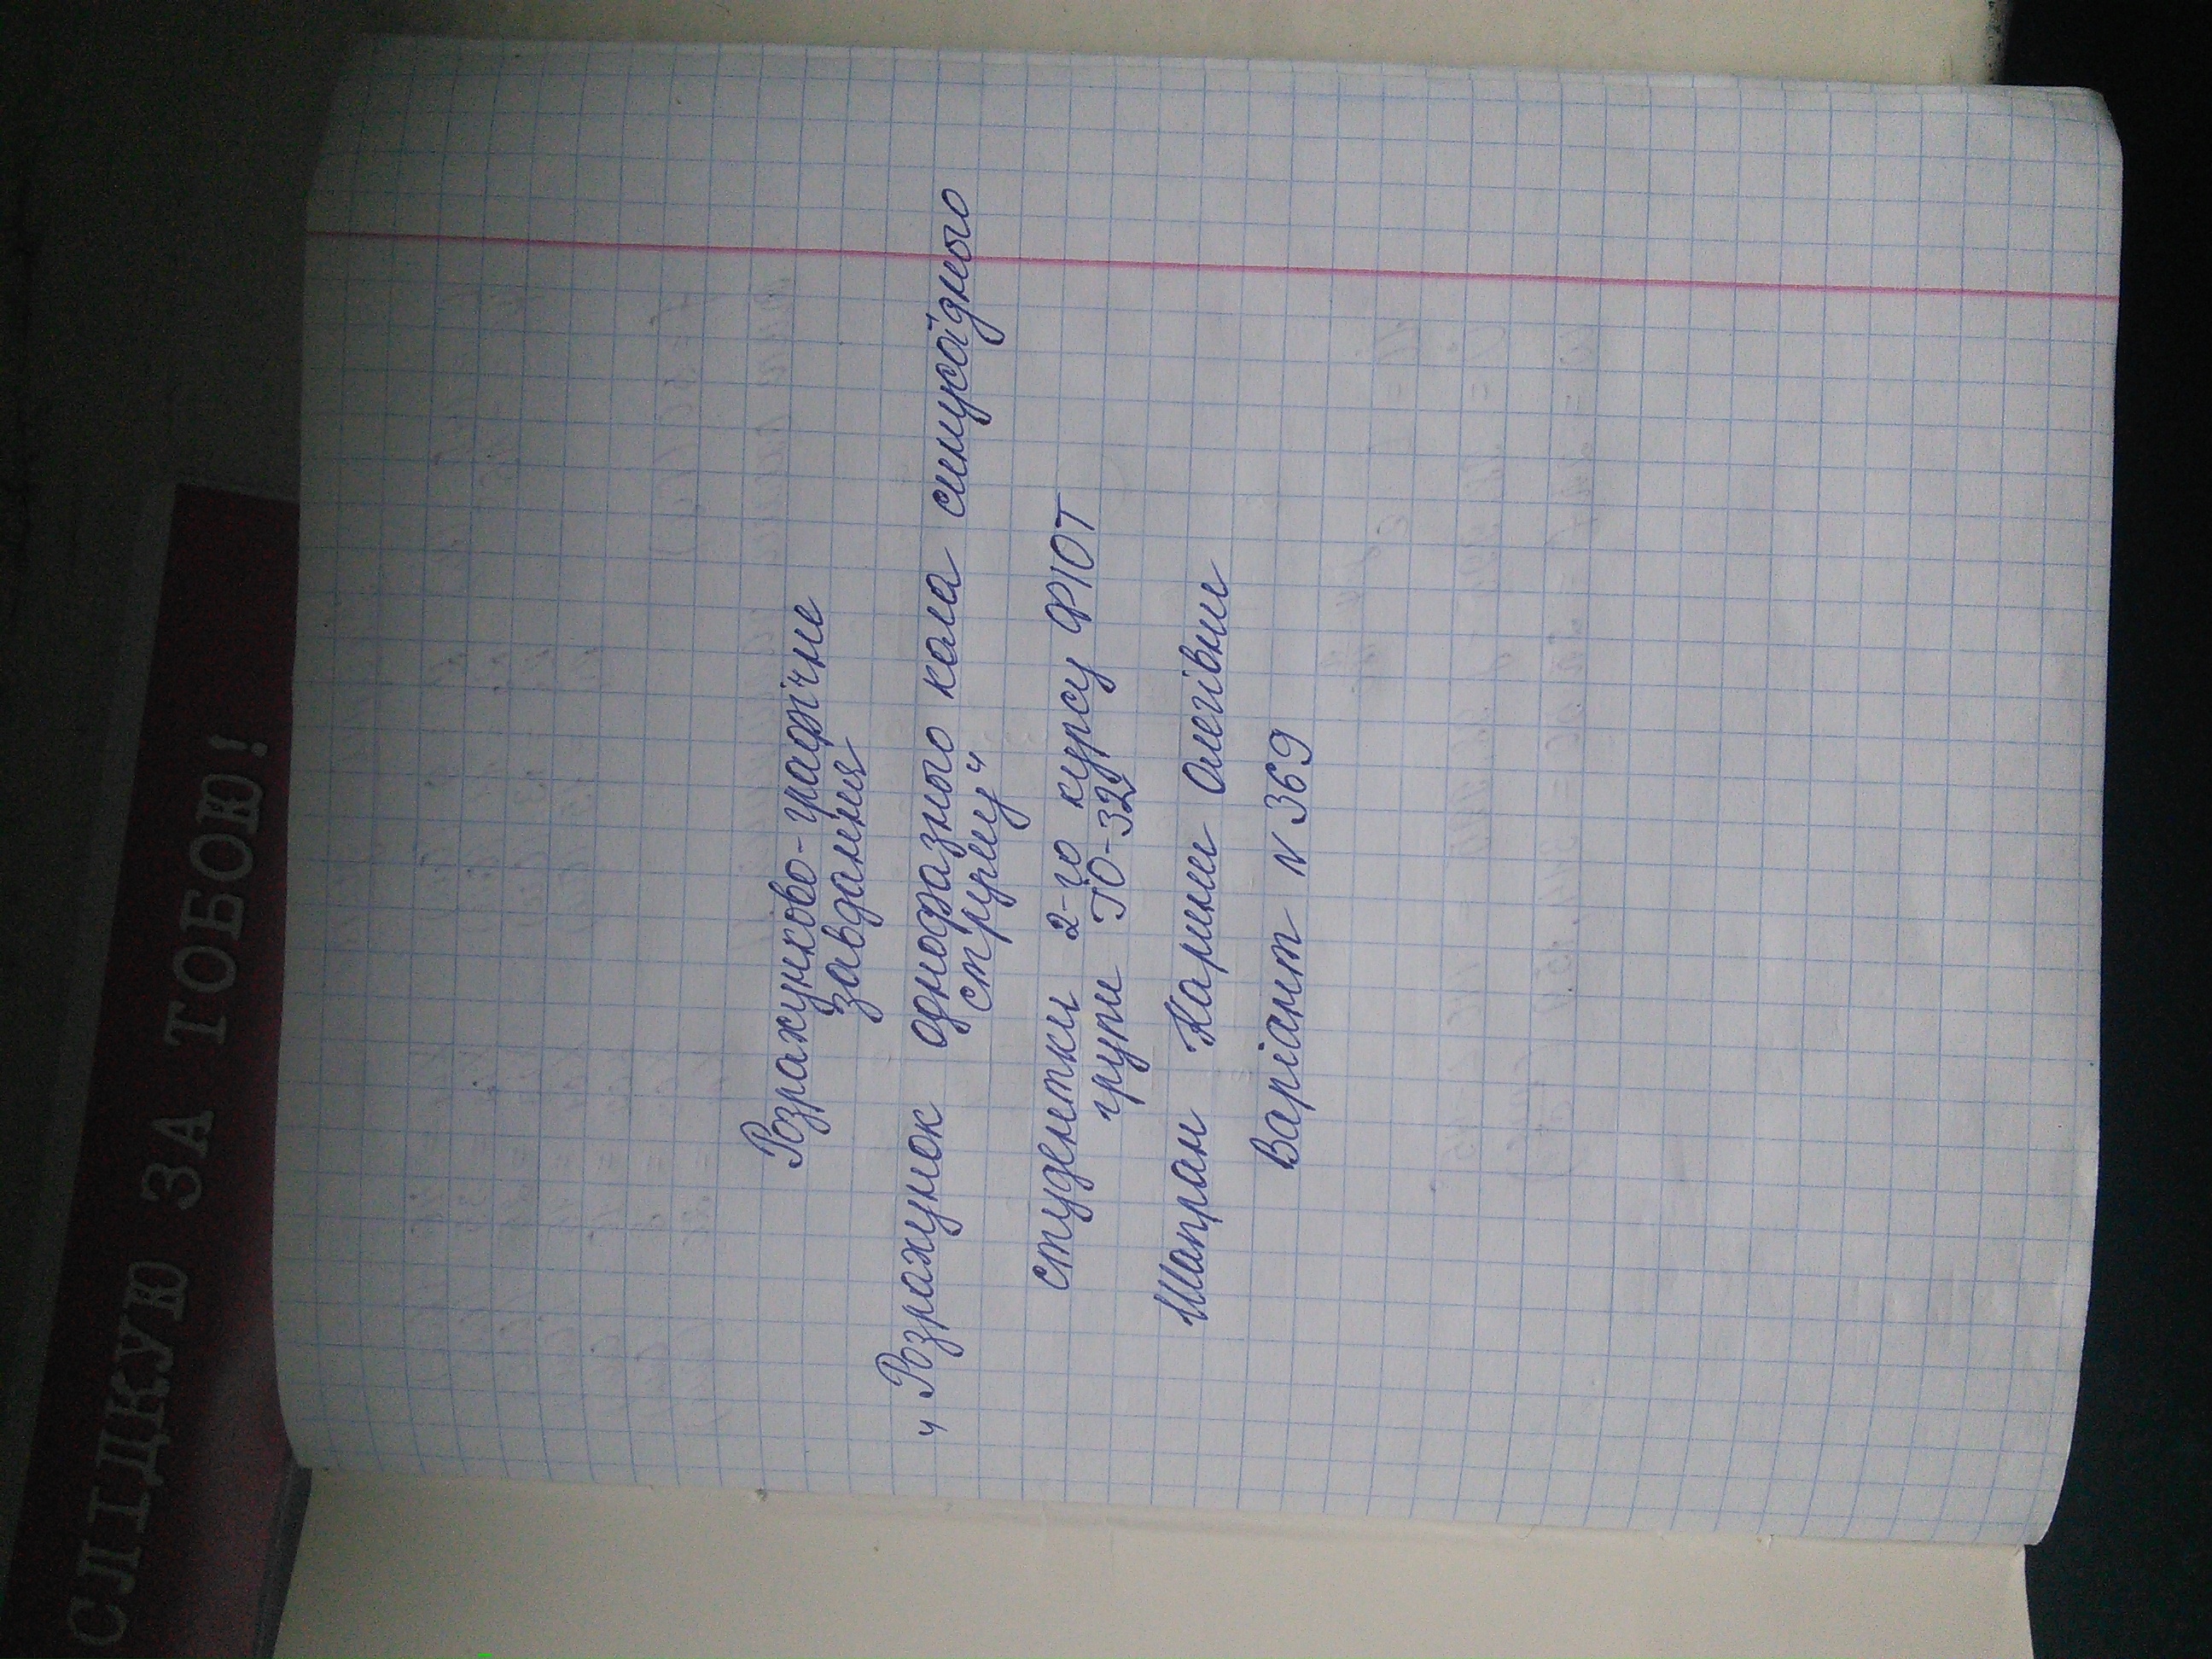 СЛІДКУЮ ЗА ТОБОЮ!
Розрахунково-графічне
завдання
"Розрахунок однофазного кола синусоїдного
струму"
студентки 2-го курсу ФІОТ
групи ІО-32
Шапран Карини Олегівни
Варіант N 369